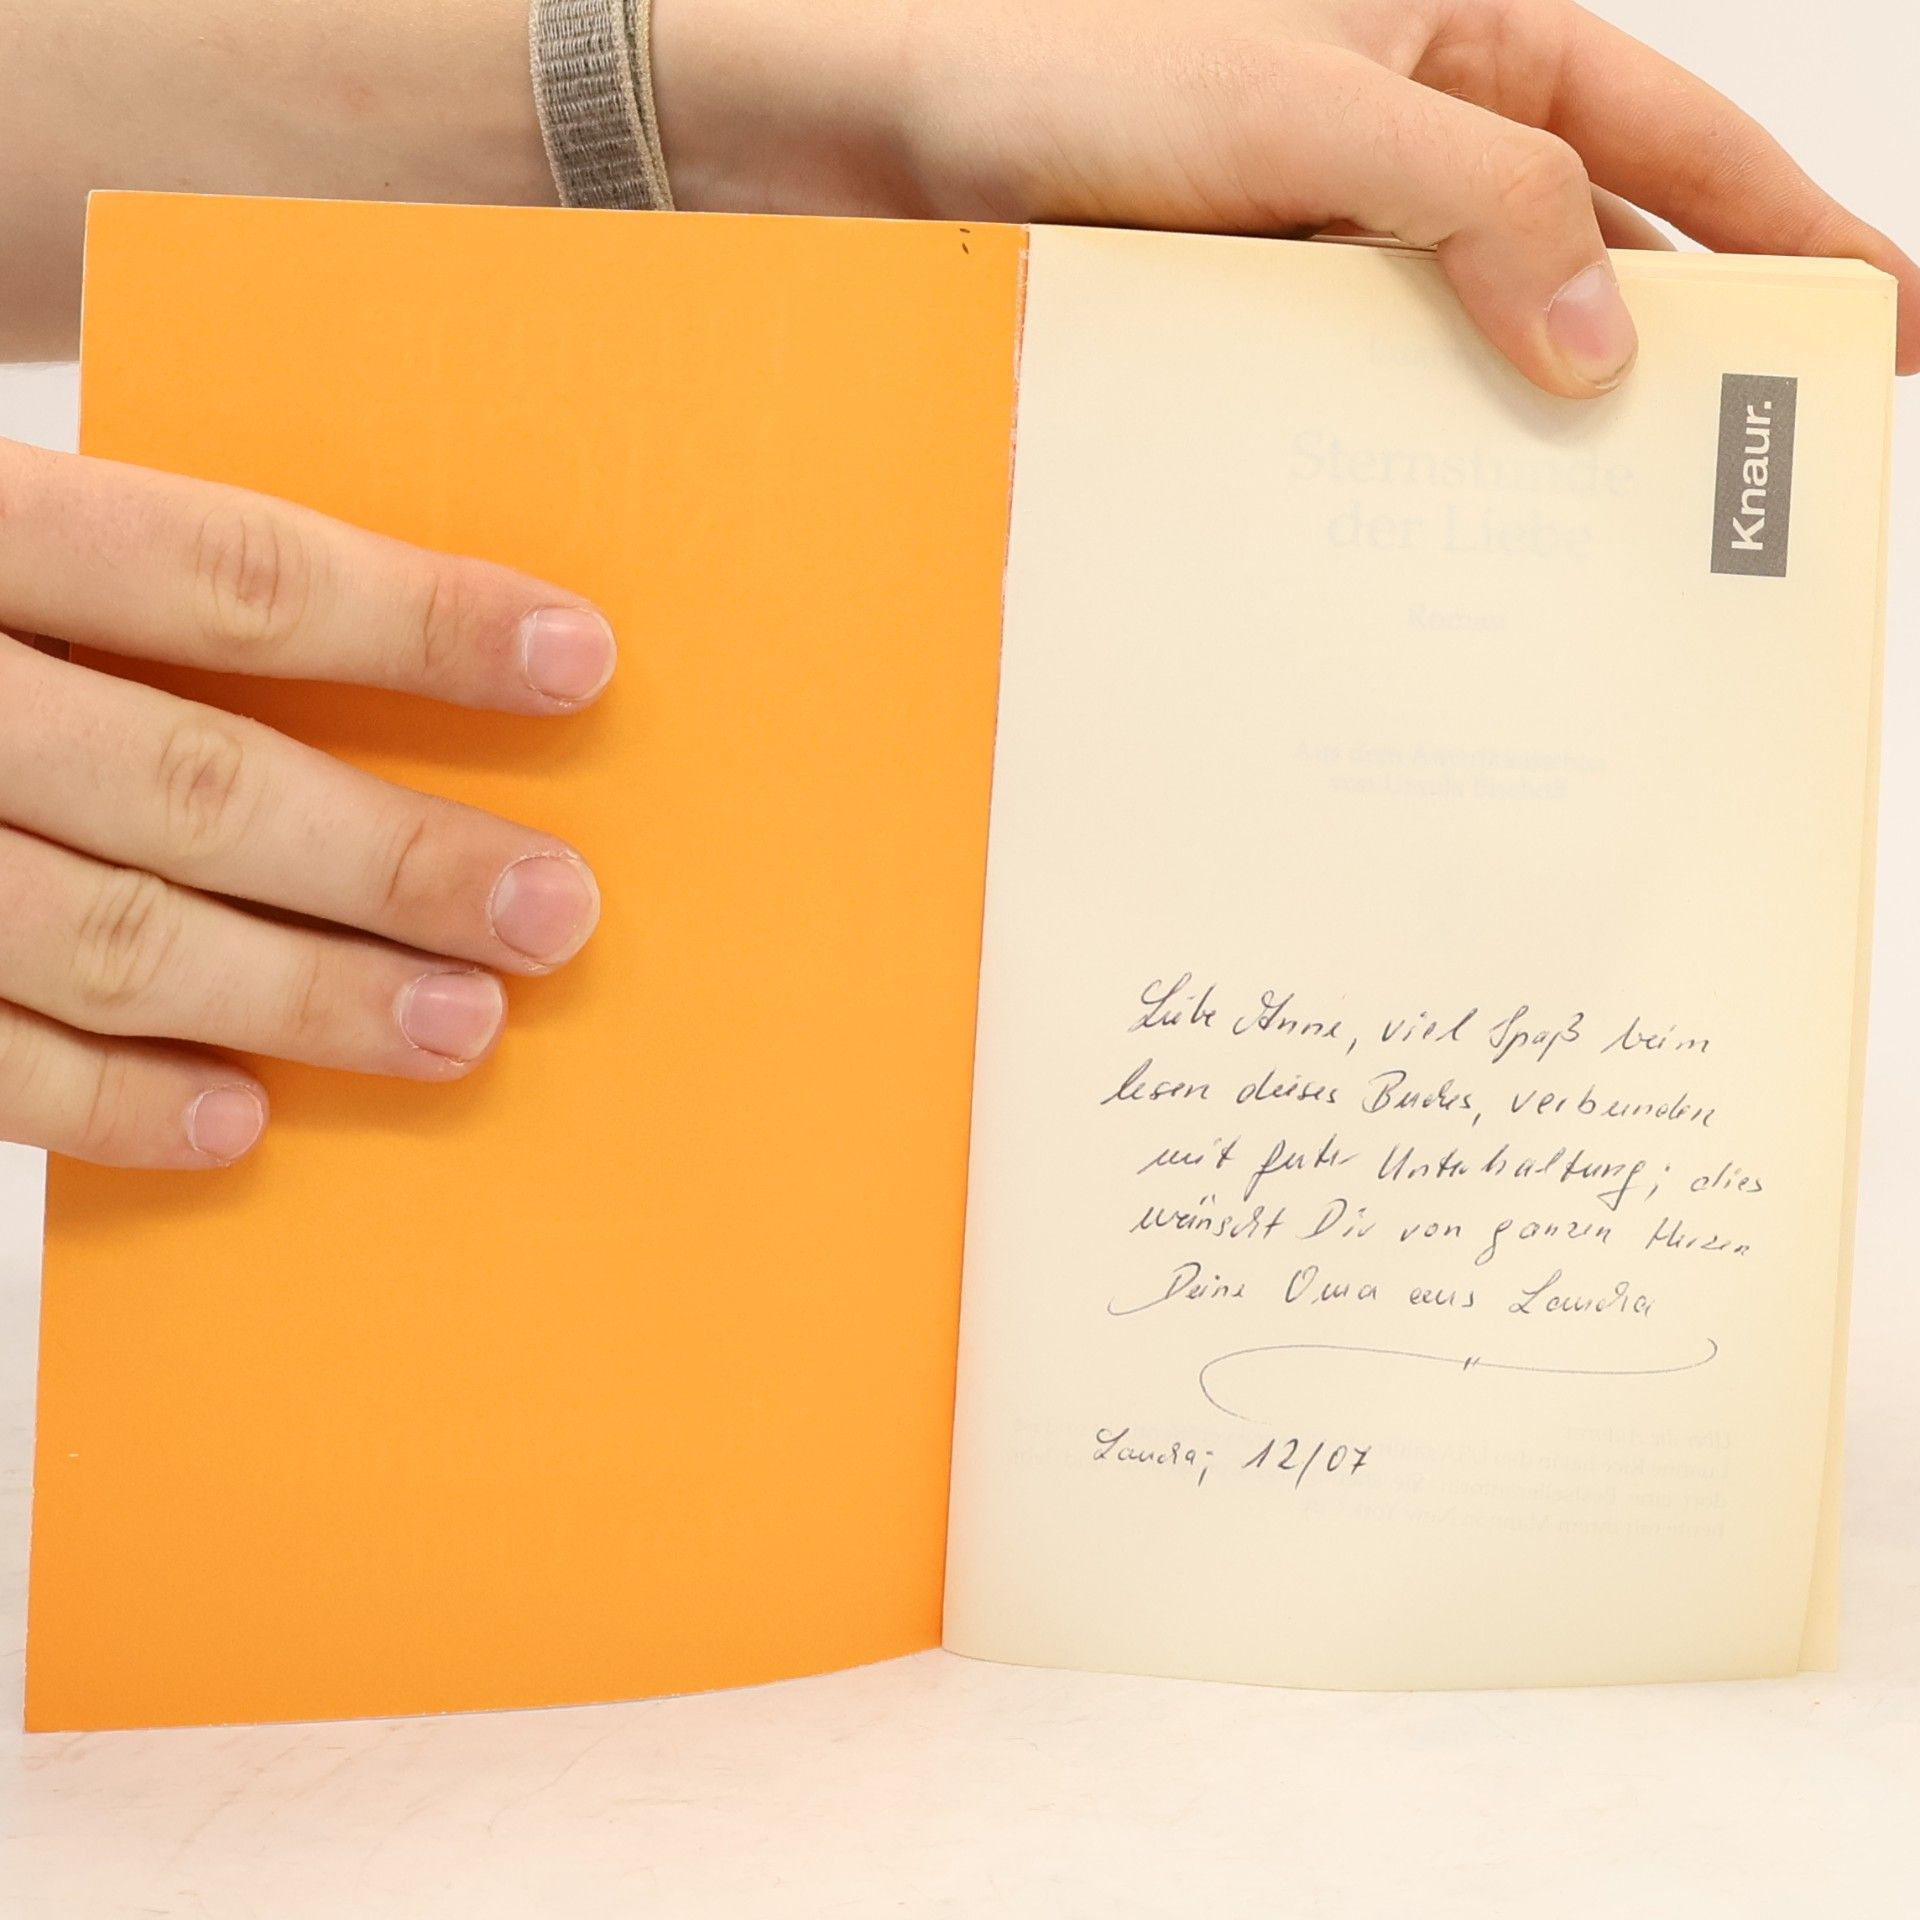 Knaur.
Sternstunde
der Liebe
Roman
Aus dem Amerikanischen
von Ursula Bischoff
Liebe Anne, viel Spaß beim
lesen dieses Buches, verbunden
mit guter Unterhaltung; dies
wünscht Dir von ganzen Herzen
Deine Oma aus Laucha
Laucha; 12/07